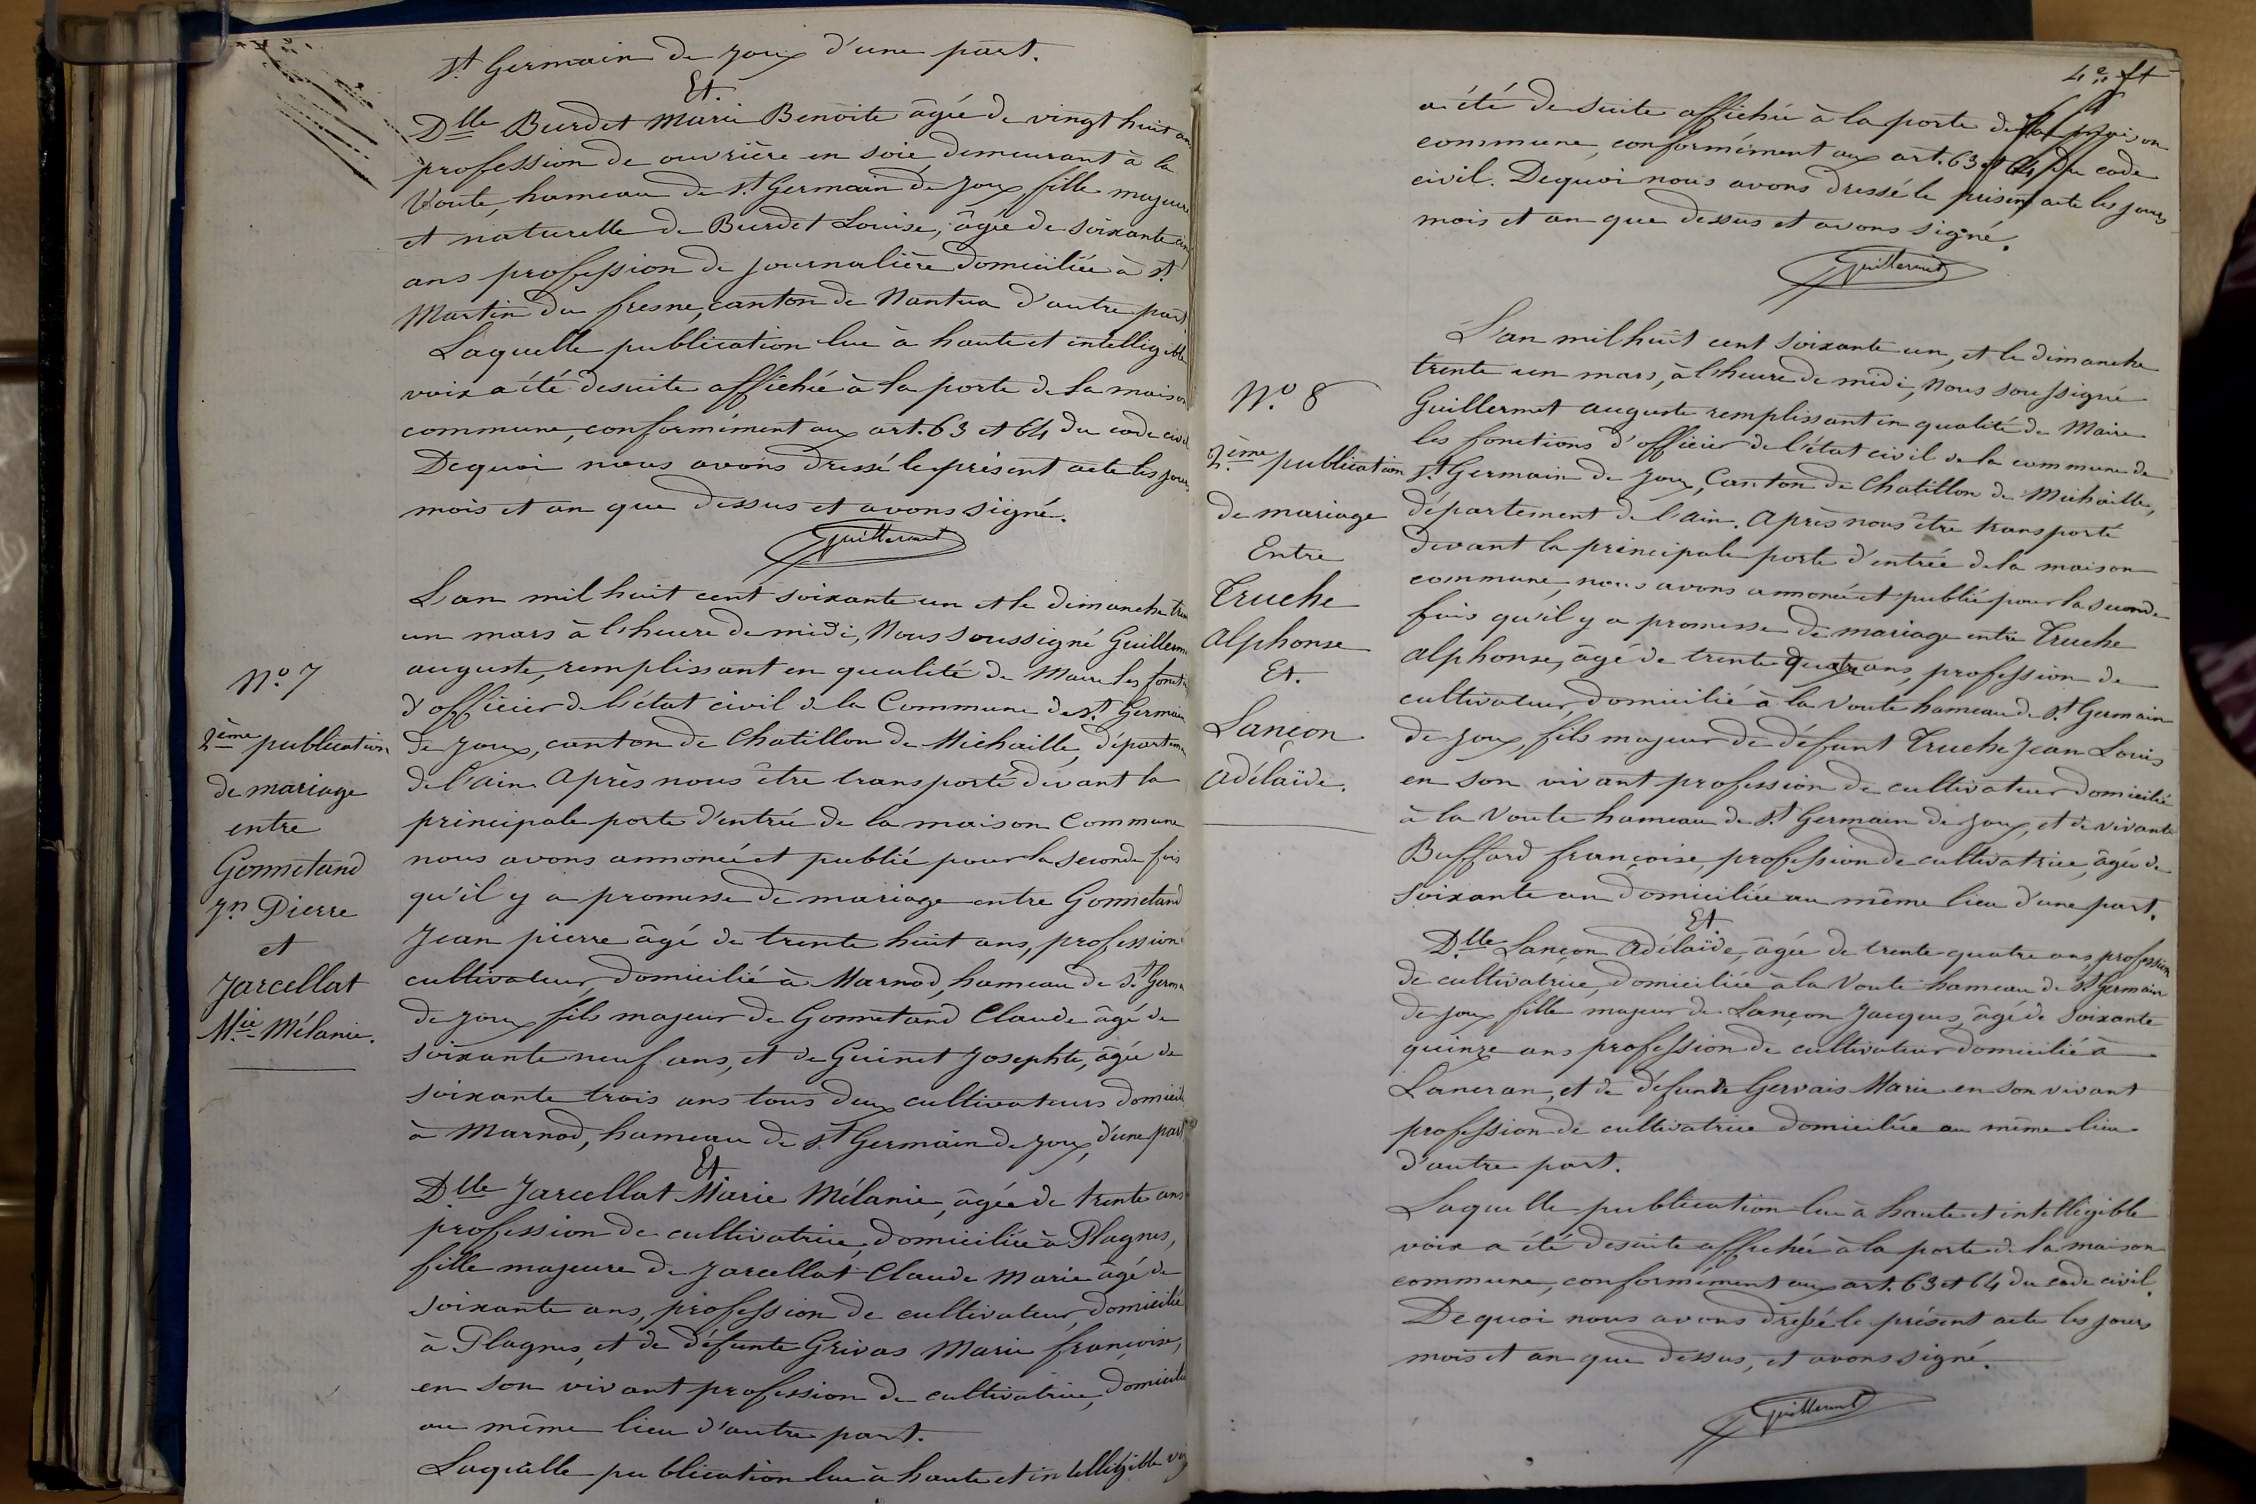 St Germain de Joux d'une part.
Et.
Dlle Burdet Marie Benoite âgée de vingt huit ans
profession de ouvrière en soie, demeurant à la
Voute, hameau de St Germain de Joux, fille majeure
et naturelle de Burdet Louise, âgée de soixante cinq
ans profession de journalière domiciliée à St
Martin du fresne, canton de Nantua d'autre part.
Laquelle publication lue à haute et intelligible
voix a été desuite affichée à la porte de la maison
commune, conformément aux art. 63 et 64 du code civil
Dequoi nous avons dressé le présent acte les jours
mois et an que dessus et avons signé.
Guillermet
N.o 7
2ème publication
de mariage
entre
Gonnetand
Jn Pierre
et
Jarcellat
Mie Mélanie.
L'an mil huit cent soixante un et le dimanche trente
un mars à l'heure de midi, Nous soussigné Guillermet
auguste, remplissant en qualité de Maire les fonct
d'officier de l'état civil de la Commune de St Germain
de Joux, canton de Chatillon de Michaille, départem
de l'ain. Après nous être transporté devant la
principale porte d'entrée de la maison Commune
nous avons annoncé et publié pour la seconde fois
qu'il y a promesse de mariage entre Gonnetand
Jean pierre âgé de trente huit ans, profession
cultivateur, domicilié à Marnod, hameau de St Germ
de Joux fils majeur de Gonnetand Claude âgé de
soixante neuf ans, et de Guinet Josephte, âgée de
soixante trois ans tous deux cultivateurs domicil
à Marnod, hameau de St Germain de Joux, d'une part
Et
Dlle Jarcellat Marie Mélanie, âgée de trente ans
profession de cultivatrice, domiciliée à Plagnes,
fille majeure de Jarcellat Claude Marie âgé de
soixante ans, profession de cultivateur, domicilié
à Plagnes, et de défunte Grivas Marie françoise,
en son vivant profession de cultivatrice, domicili
au même lieu d'autre part.
Laquelle publication lue à haute et intelligible voix
4e ft
a été de suite affichée à la porte de la maison
commune, conformément aux art. 63 et 64 du code
civil. Dequoi nous avons dressé le présent acte les jours
mois et an que dessus et avons signé.
Guillermet
N.o 8
2ème publication
de mariage
Entre
Truche
alphonse
Et.
Lançon
adélaïde.
L'an mil huit cent soixante un, et le dimanche
trente un mars, à l'heure de midi, Nous soussigné
Guillermet auguste remplissant en qualité de Maire
les fonctions d'officier de l'état civil de la commune de
St Germain de Joux, Canton de Chatillon de Michaille,
département de l'ain. Après nous être transporté
devant la principale porte d'entrée de la maison
commune, nous avons annoncé et publié pour la seconde
fois qu'il y a promesse de mariage entre Truche
alphonse, âgé de trente quatre ans, profession de
cultivateur, domicilié à la Voute hameau de St Germain
de Joux, fils majeur de défunt Truche Jean Louis
en son vivant profession de cultivateur domicilié
à la Voute hameau de St Germain de Joux, et de vivante
Buffard françoise, profession de cultivatrice, âgée de
soixante un domiciliée au même lieu d'une part.
Et.
Dlle Lançon adélaïde, âgée de trente quatre ans, profession
de cultivatrice, domiciliée à la Voute hameau de St Germain
de Joux fille majeur de Lançon Jacques, âgé de soixante
quinze ans profession de cultivateur domicilié à
Lancran, et de défunte Gervais Marie en son vivant
profession de cultivatrice domiciliée au même lieu
d'autre part.
Laquelle publication lue à haute et intelligible
voix a été desuite affichée à la porte de la maison
commune, conformément aux art. 63 et 64 du code civil.
De quoi nous avons dressé le présent acte les jours
mois et an que dessus, et avons signé.
Guillermet